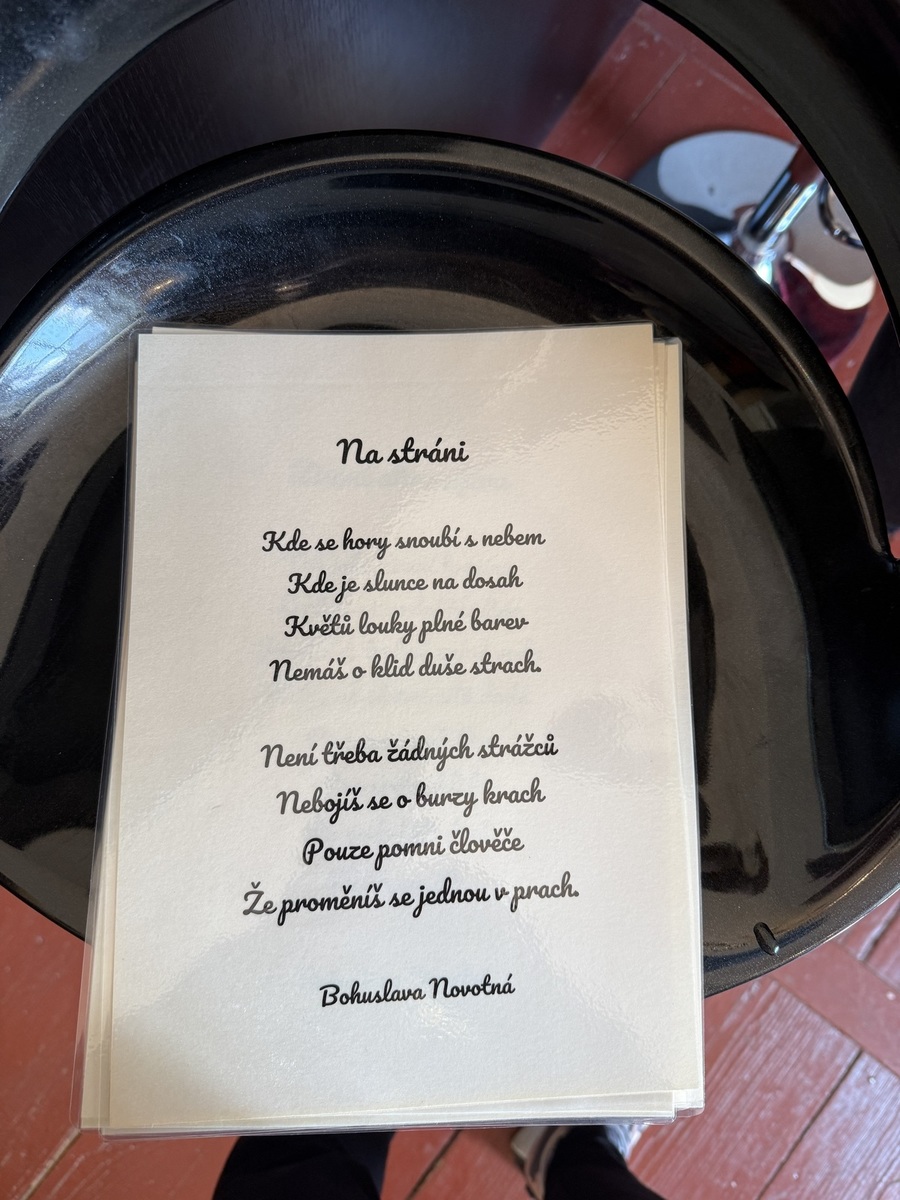 Na stráni
Kde se hory snoubí s nebem
Kde je slunce na dosah
Květů louky plné barev
Nemáš o klid duše strach.
Není třeba žádných strážců
Nebojíš se o burzy krach
Pouze pomni člověče
Že proměníš se jednou v prach.
Bohuslava Novotná